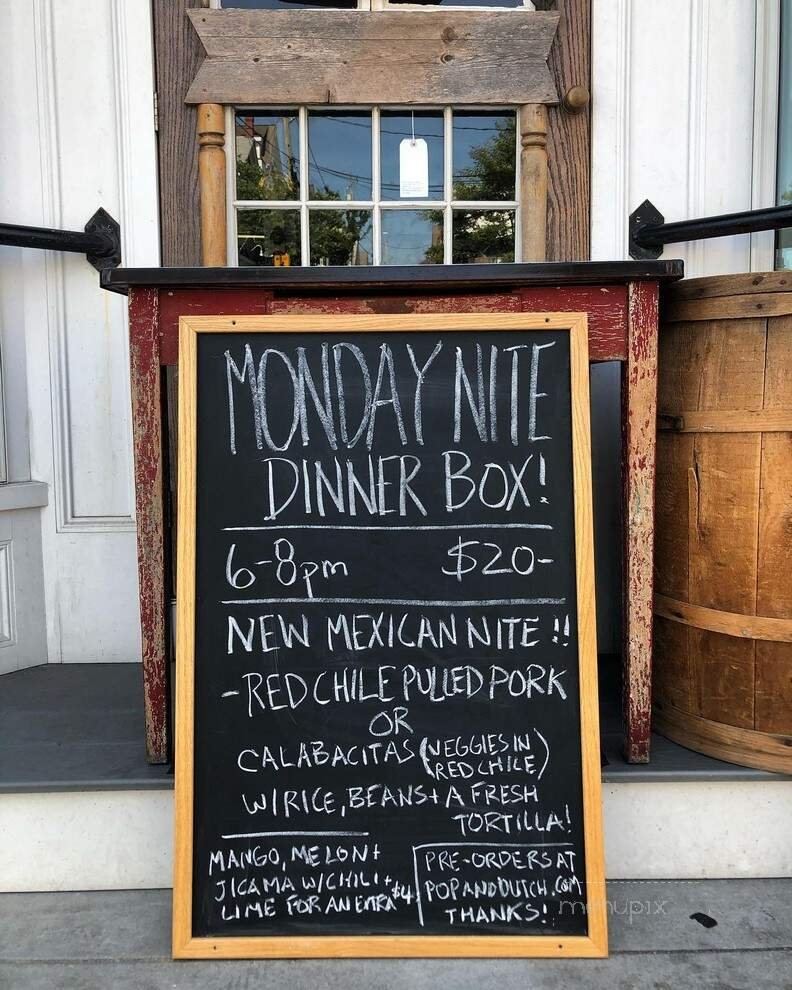 MONDAY NITE
DINNER BOX!
6-8pm $20-
NEW MEXICAN NITE!!
- RED CHILE PULLED PORK
OR
CALABACITAS (VEGGIES IN
RED CHILE)
W/ RICE, BEANS + A FRESH
TORTILLA!
MANGO, MELON +
JICAMA W/ CHILI +
LIME FOR AN EXTRA $4
PRE-ORDERS AT
POPANDDUTCH.COM
THANKS!
menupix